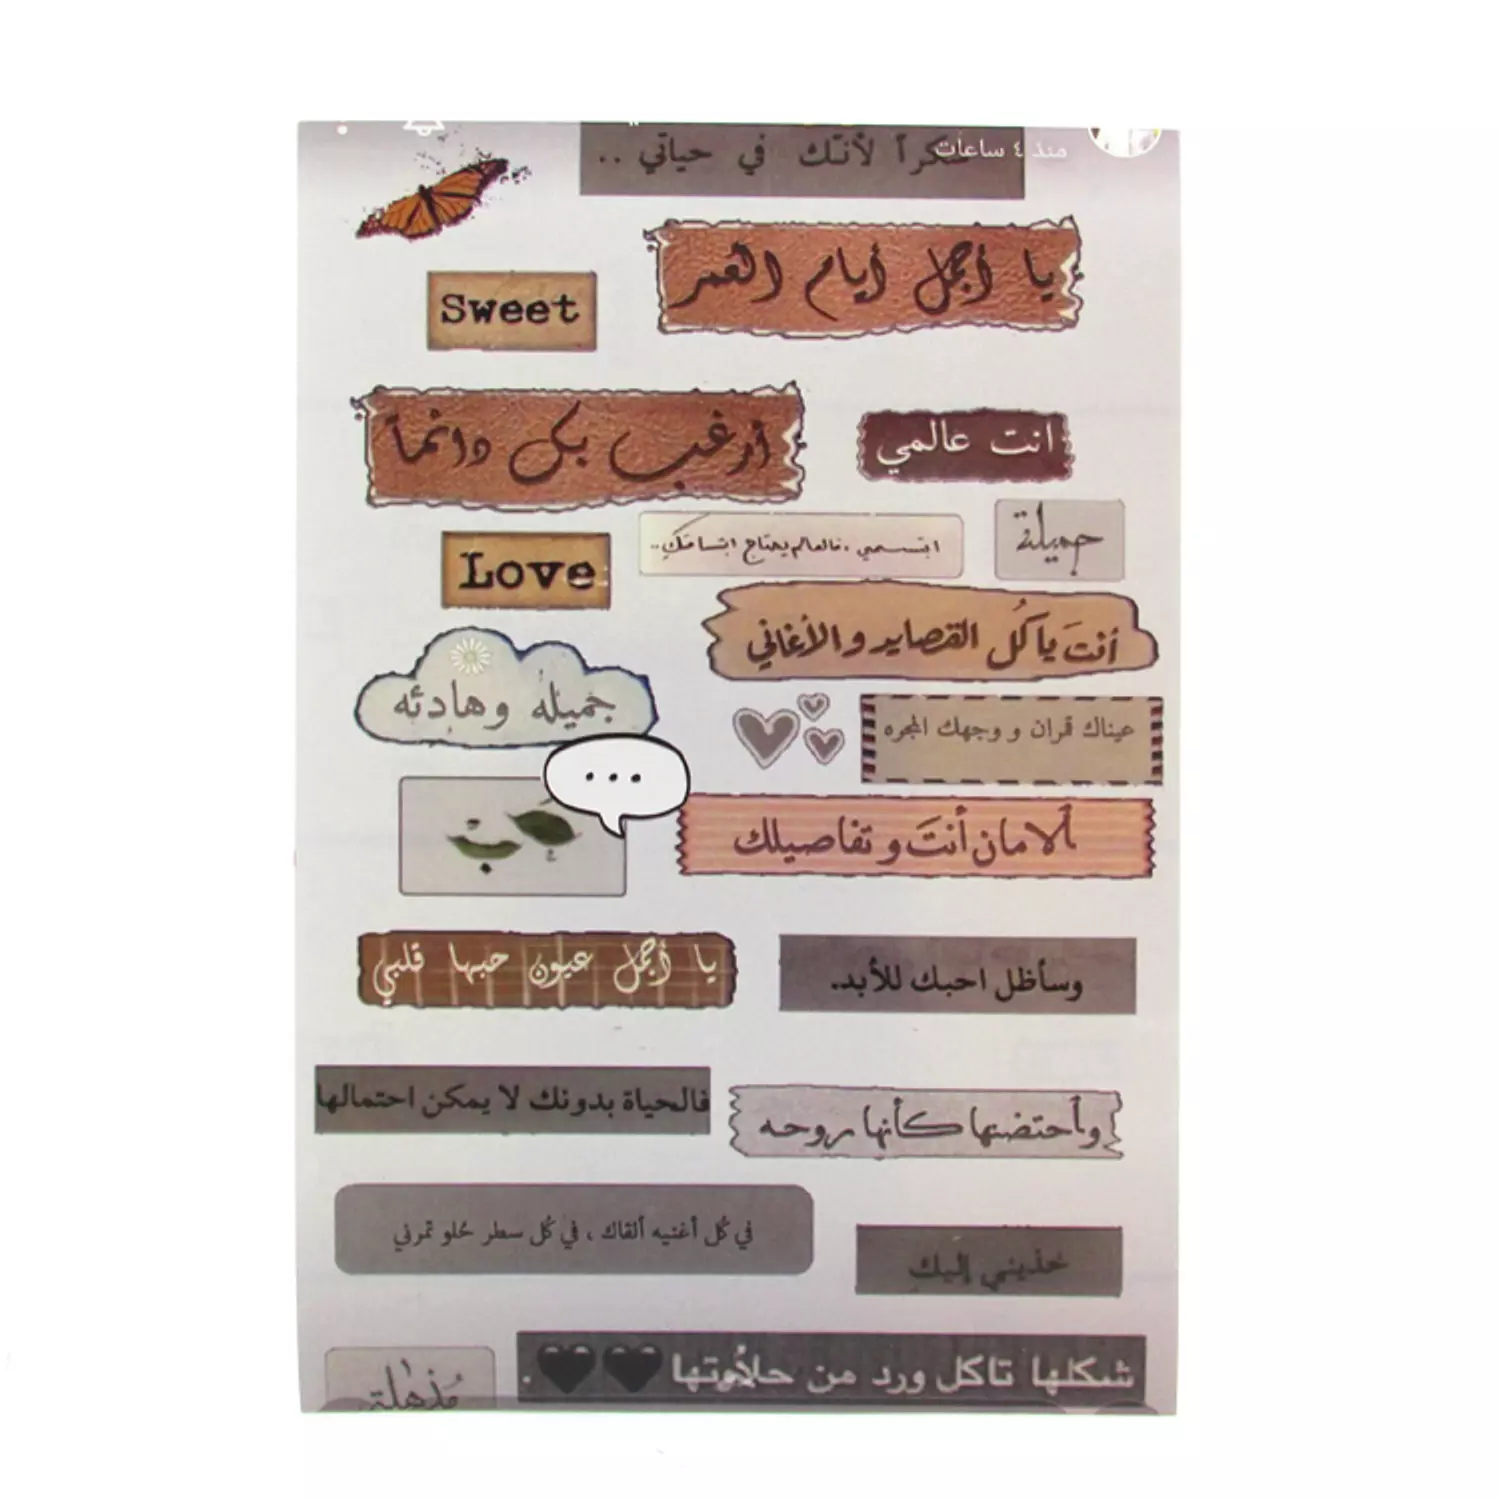 منذ ٤ ساعات
شكراً لأنّك في حياتي ..
يا أجمل أيام العمر
Sweet
أرغب بكل دائماً
انت عالمي
جميلة
ابتسمي ، فالعالم يحتاج ابتسامتكِ..
Love
أنتَ يا كُل القصايد و الأغاني
جميله وهادئه
عيناك قمران و وجهك المجره
...
الامان أنتَ و تفاصيلك
يا أجمل عيون حبها قلبي
وسأظل احبك للأبد.
فالحياة بدونك لا يمكن احتمالها
وأحتضنها كأنها روحه
في كُل أغنيه ألقاك ، في كُل سطر حُلو تمرني
خذيني إليك
شكلها تاكل ورد من حلاوتها🖤🖤.
مُذهلة